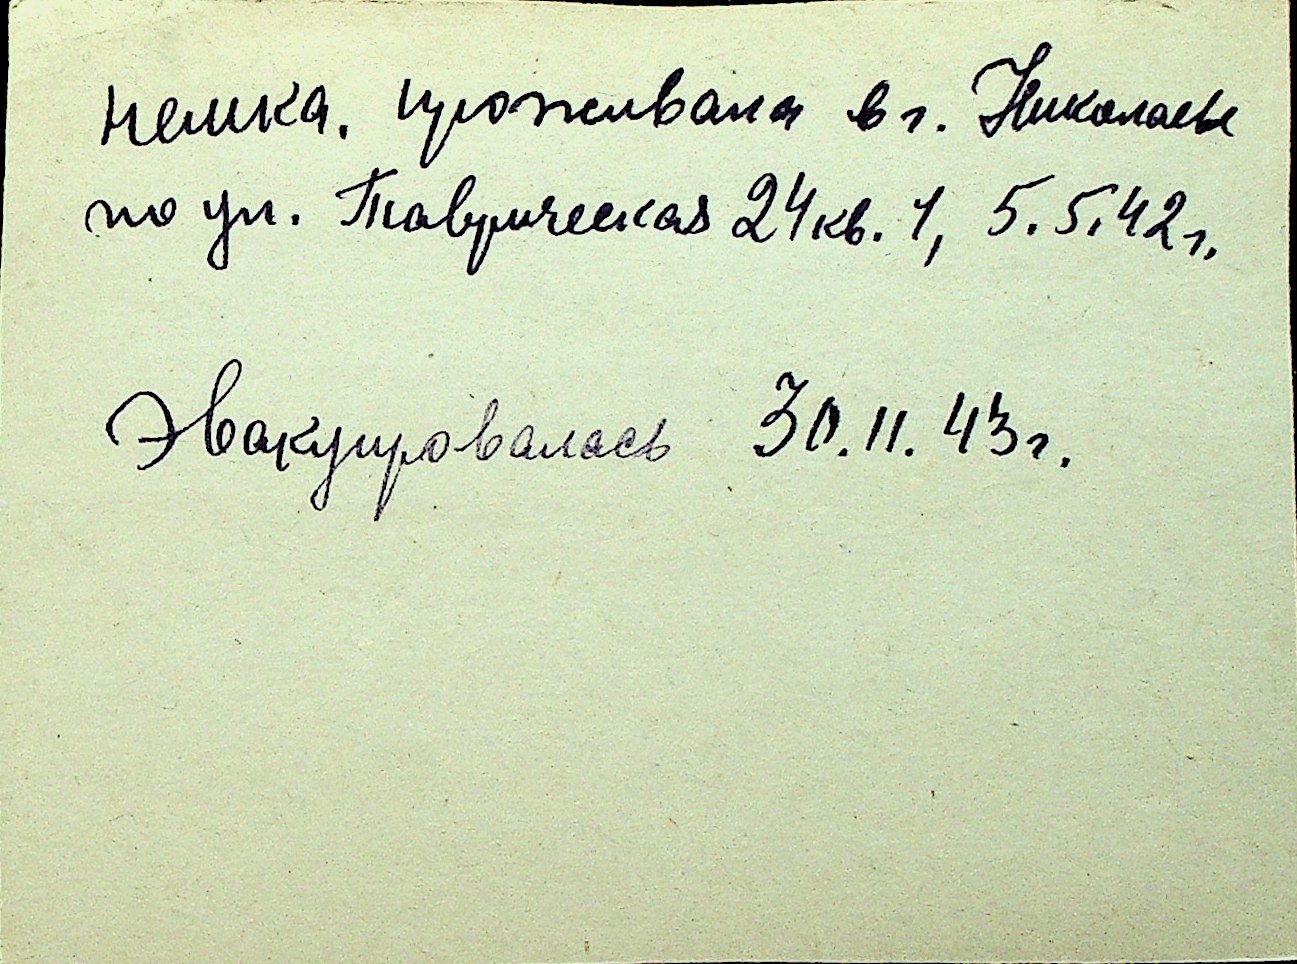 немка. проживала в г. Николаеве
по ул. Таврическая 24 кв. 1, 5.5.42 г.
Эвакуировалась 30.11.43 г.